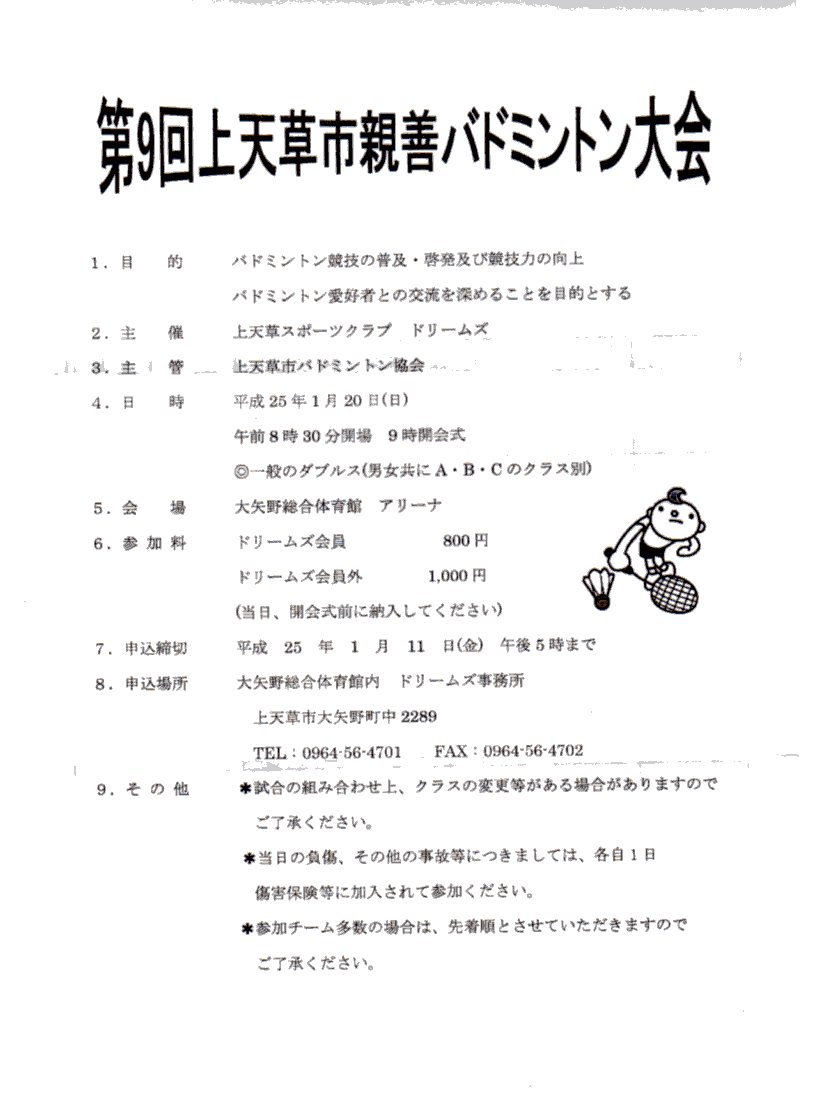 第9回上天草市親善バドミントン大会
1．目　的　バドミントン競技の普及・啓発及び競技力の向上
バドミントン愛好者との交流を深めることを目的とする
2．主　催　上天草スポーツクラブ　ドリームズ
3．主　管　上天草市バドミントン協会
4．日　時　平成25年1月20日(日)
午前8時30分開場　9時開会式
◎一般のダブルス(男女共にA・B・Cのクラス別)
5．会　場　大矢野総合体育館　アリーナ
6．参加料　ドリームズ会員　800円
ドリームズ会員外　1,000円
(当日、開会式前に納入してください)
7．申込締切　平成　25　年　1　月　11　日(金)　午後5時まで
8．申込場所　大矢野総合体育館内　ドリームズ事務所
上天草市大矢野町中2289
TEL：0964-56-4701　FAX：0964-56-4702
9．その他　＊試合の組み合わせ上、クラスの変更等がある場合がありますので
ご了承ください。
＊当日の負傷、その他の事故等につきましては、各自1日
傷害保険等に加入されて参加ください。
＊参加チーム多数の場合は、先着順とさせていただきますので
ご了承ください。